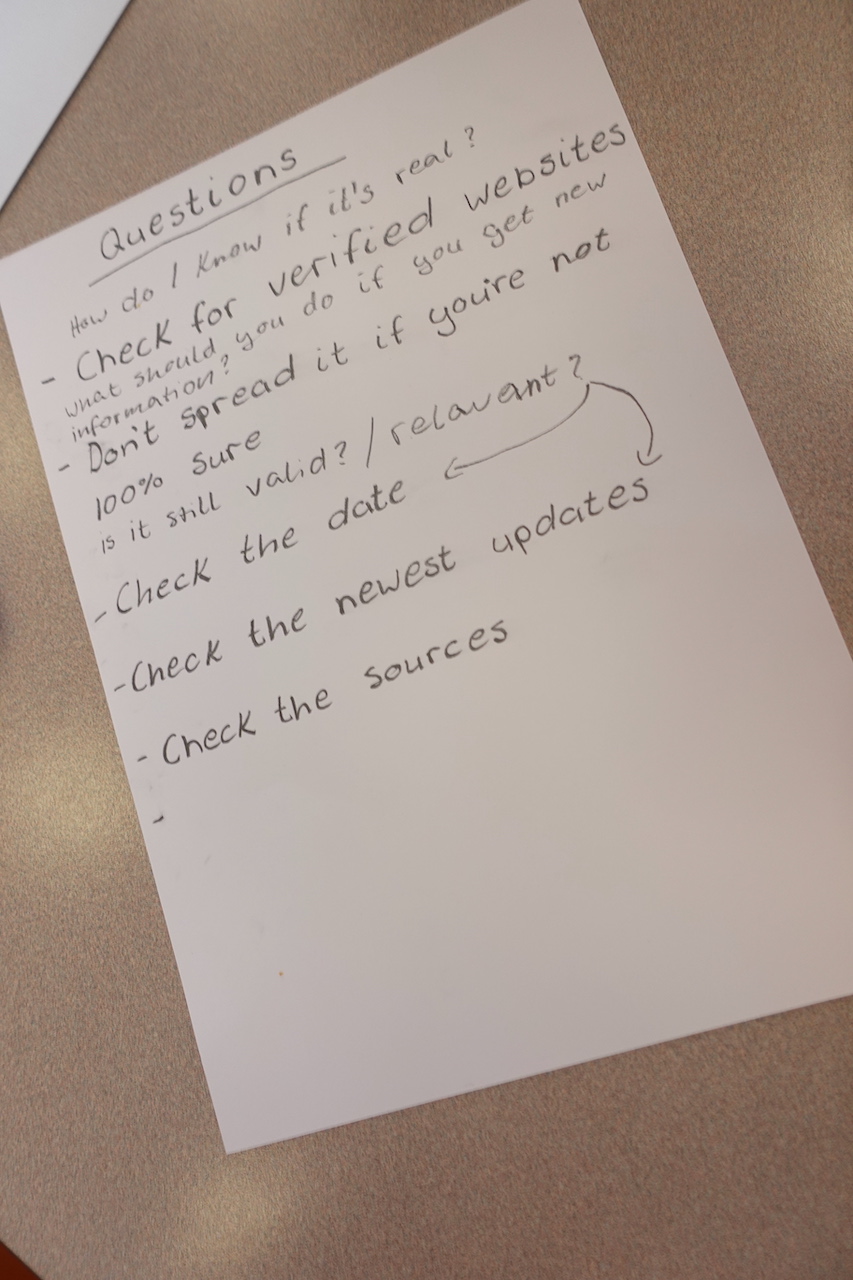 Questions
How do I know if it's real?
- Check for verified websites
what should you do if you get new
information?
- Don't spread it if you're not
100% sure
is it still valid? / relavant?
- Check the date
- Check the newest updates
- Check the sources
-